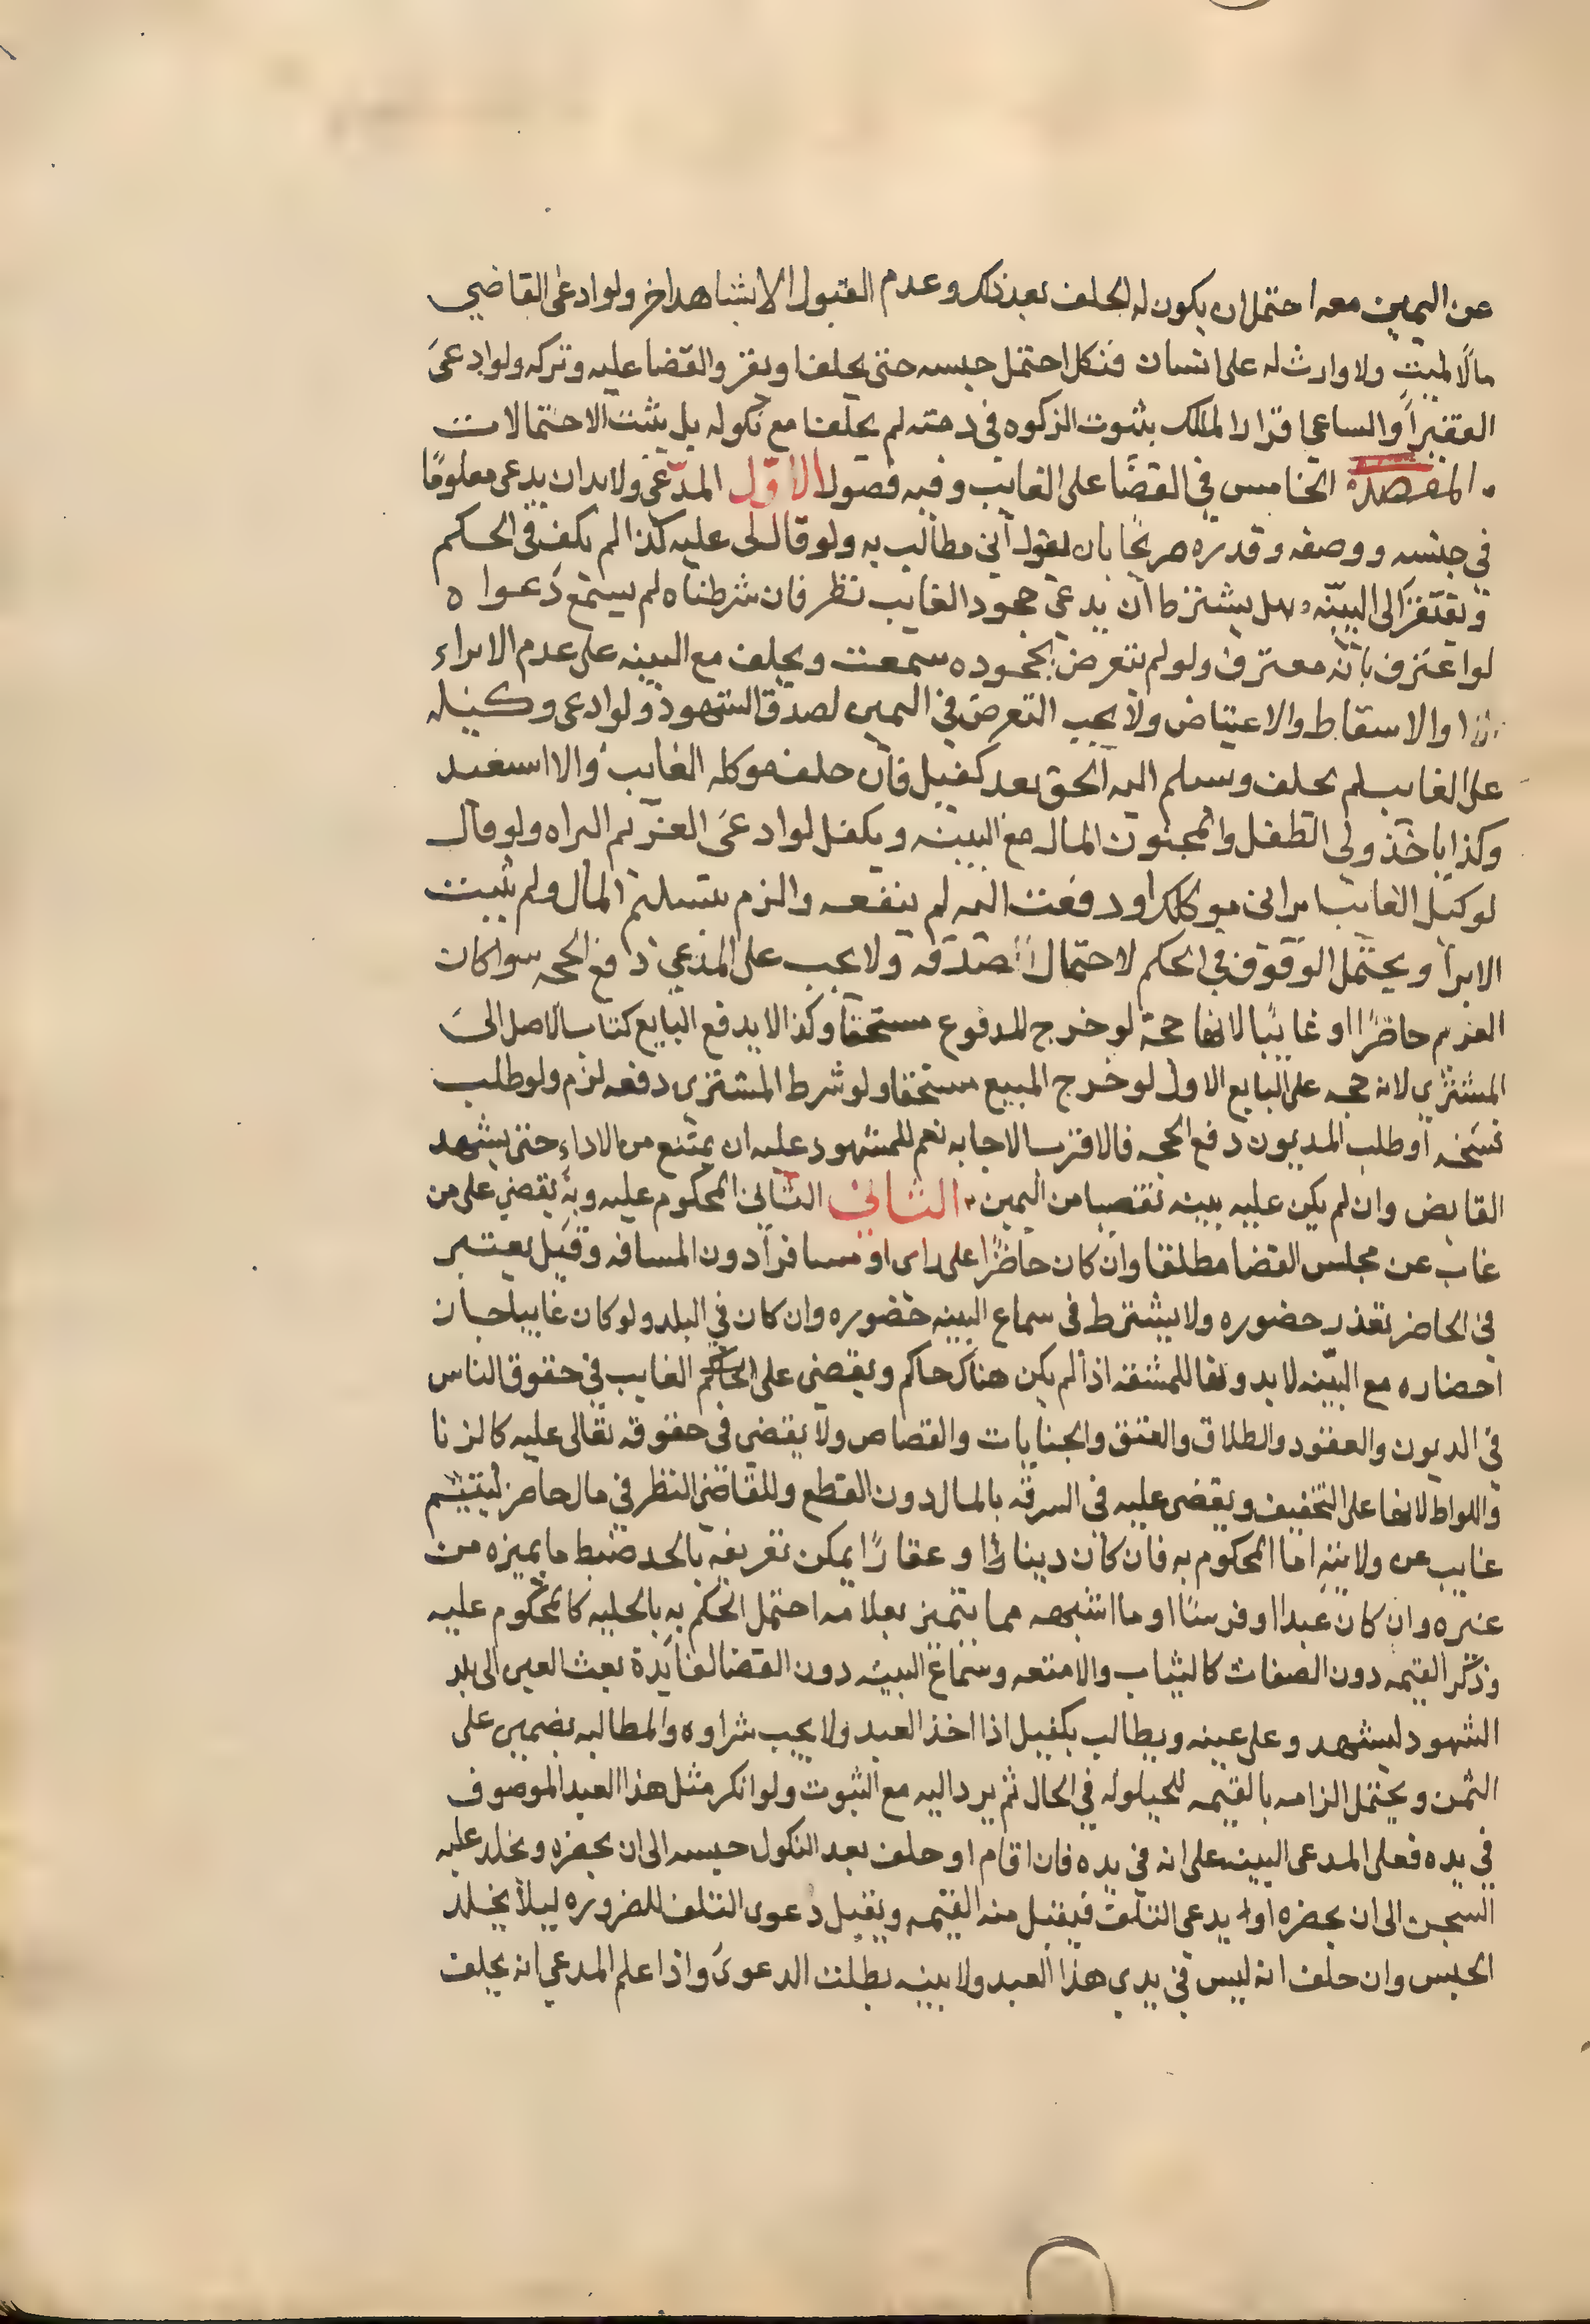 عن اليمين معه احتمل ان يكون له الحلف بعد ذلك وعدم القبول الا بشاهد اخر ولو ادعى القاضي
مالًا لميت ولا وارث له على انسان فنكل احتمل حبسه حتى يحلف او يقر والقضا عليه وتركه ولو ادعى
الفقير او الساعي اقرار المالك بثبوت الزكوه في ذمته لم يحلف مع نكوله بل يثبت الاحتمالات
المقصد الخامس في القضا على الغايب وفيه فصول الاول المدعي ولا بد ان يدعي معلومًا
في جنسه ووصفه وقدره صريحا بان يقول اني مطالب به ولو قال لي عليه كذا لم يكف في الحكم
ويفتقر الى البينه وهل يشترط ان يدعي جحود الغايب نظر فان شرطناه لم يسمع دعواه
لو اعترف بانه معترف ولو لم يتعرض بجحوده سمعت ويحلف مع البينه على عدم الابراء
والاسقاط والاعتياض ولا يجب التعرض في اليمين لصدق الشهود ولو ادعى وكيله
على الغايب لم يحلف وسلم اليه الحق بعد كفيل فان حلف موكله الغايب والا استعيد
وكذا ياخذ ولي الطفل والمجنون المال مع البينه ويكفل لو ادعى الغريم البراه ولو قال
لوكيل الغايب ابراني موكلك او دفعت اليه لم ينفعه والزم بتسليم المال ولم يثبت
الابرا ويحتمل الوقوف في الحكم لاحتمال صدقه ولا يجب على المدعي دفع الحجه سوا كان
الغريم حاضرًا او غايبًا لانها حجة لو خرج المدفوع مستحقا وكذا لا يدفع البايع كتاب الاصل الى
المشتري لانه حجه على البايع الاول لو خرج المبيع مستحقا ولو شرط المشتري دفعه لزم ولو طلب
نسخه او طلب المديون دفع الحجه فالاقرب الاجابه نعم للمشهود عليه ان يمتنع من الاداء حتى يشهد
القابض وان لم يكن عليه بينه تفصيا من اليمين الثاني الثاني المحكوم عليه وبه يقضي على من
غاب عن مجلس القضا مطلقا وان كان حاضرًا على راى او مسافرًا دون المسافه وقيل يعتبر
في الحاضر تعذر حضوره ولا يشترط في سماع البينه حضوره وان كان في البلد ولو كان غايبا جاز
احضاره مع البينه لا بدونها للمشقه اذا لم يكن هناك حاكم ويقضى على الحاكم الغايب في حقوق الناس
في الديون والعقود والطلاق والعتق والجنايات والقصاص ولا يقضى في حقوقه تعالى عليه كالزنا
واللواط لانها على التخفيف ويقضى عليه في السرقه بالمال دون القطع وللقاضي النظر في مال حاضر ليتيم
غايب عن ولايته اما المحكوم به فان كان دينارًا او عقارًا يمكن تعريفه بالحد ضبط ما يميزه من
غيره وان كان عبدا او فرسًا او ما اشبهه مما يتميز بعلامه احتمل الحكم به بالحليه كالمحكوم عليه
وذكر القيمه دون الصفات كالثياب والامتعه وسماع البينه دون القضا لفايدة بعث العين الى بلد
الشهود ليشهدو على عينه ويطالب بكفيل اذا اخذ العبد ولا يجب شراوه والمطالبه بضمين على
الثمن ويحتمل الزامه بالقيمه للحيلوله في الحال ثم يرد اليه مع الثبوت ولو انكر مثل هذا العبد الموصوف
في يده فعلى المدعى البينه على انه في يده فان اقام او حلف بعد النكول حبسه الى ان يحضره ويخلد عليه
السجن الى ان يحضره او يدعى التلف فيقبل منه القيمه ويقبل دعوى التلف للضروره ليلأ يخلد
الحبس وان حلف انه ليس في يدي هذا العبد ولا بينه بطلت الدعوى واذا علم المدعي انه يحلف